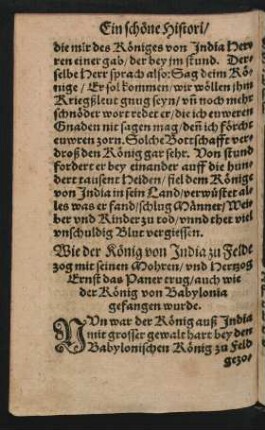 Ein schöne Histori/
die mir des Königes von India Her/
ren einer gab/ der bey jm stund. Der/
selbe Herr sprach also: Sag deim Kö/
nige/ Er sol kommen/ wir wöllen jhm
Kriegßleut gnug seyn/ vñ noch mehr
schnöder wort redet er/ die ich euweren
Gnaden nit sagen mag/ deñ ich förcht
euwren zorn. Solche Bottschafft ver/
droß den König gar sehr. Von stund
fordert er bey einander auff die hun/
dert tausent Heiden/ fiel dem Könige
von India in sein Land/ verwüstet al/
les was er fand/ schlug Männer/ Wei/
ber vnd Kinder zu tod/ vnnd thet viel
vnschuldig Blut vergiessen.
Wie der König von India zu Feldt
zog mit seinen Mohren/ vnd Hertzog
Ernst das Paner trug/ auch wie
der König von Babylonia
gefangen wurde.
NVn war der König auß India
mit grosser gewalt hart bey den
Babylonischen König zu Feld
gezo/